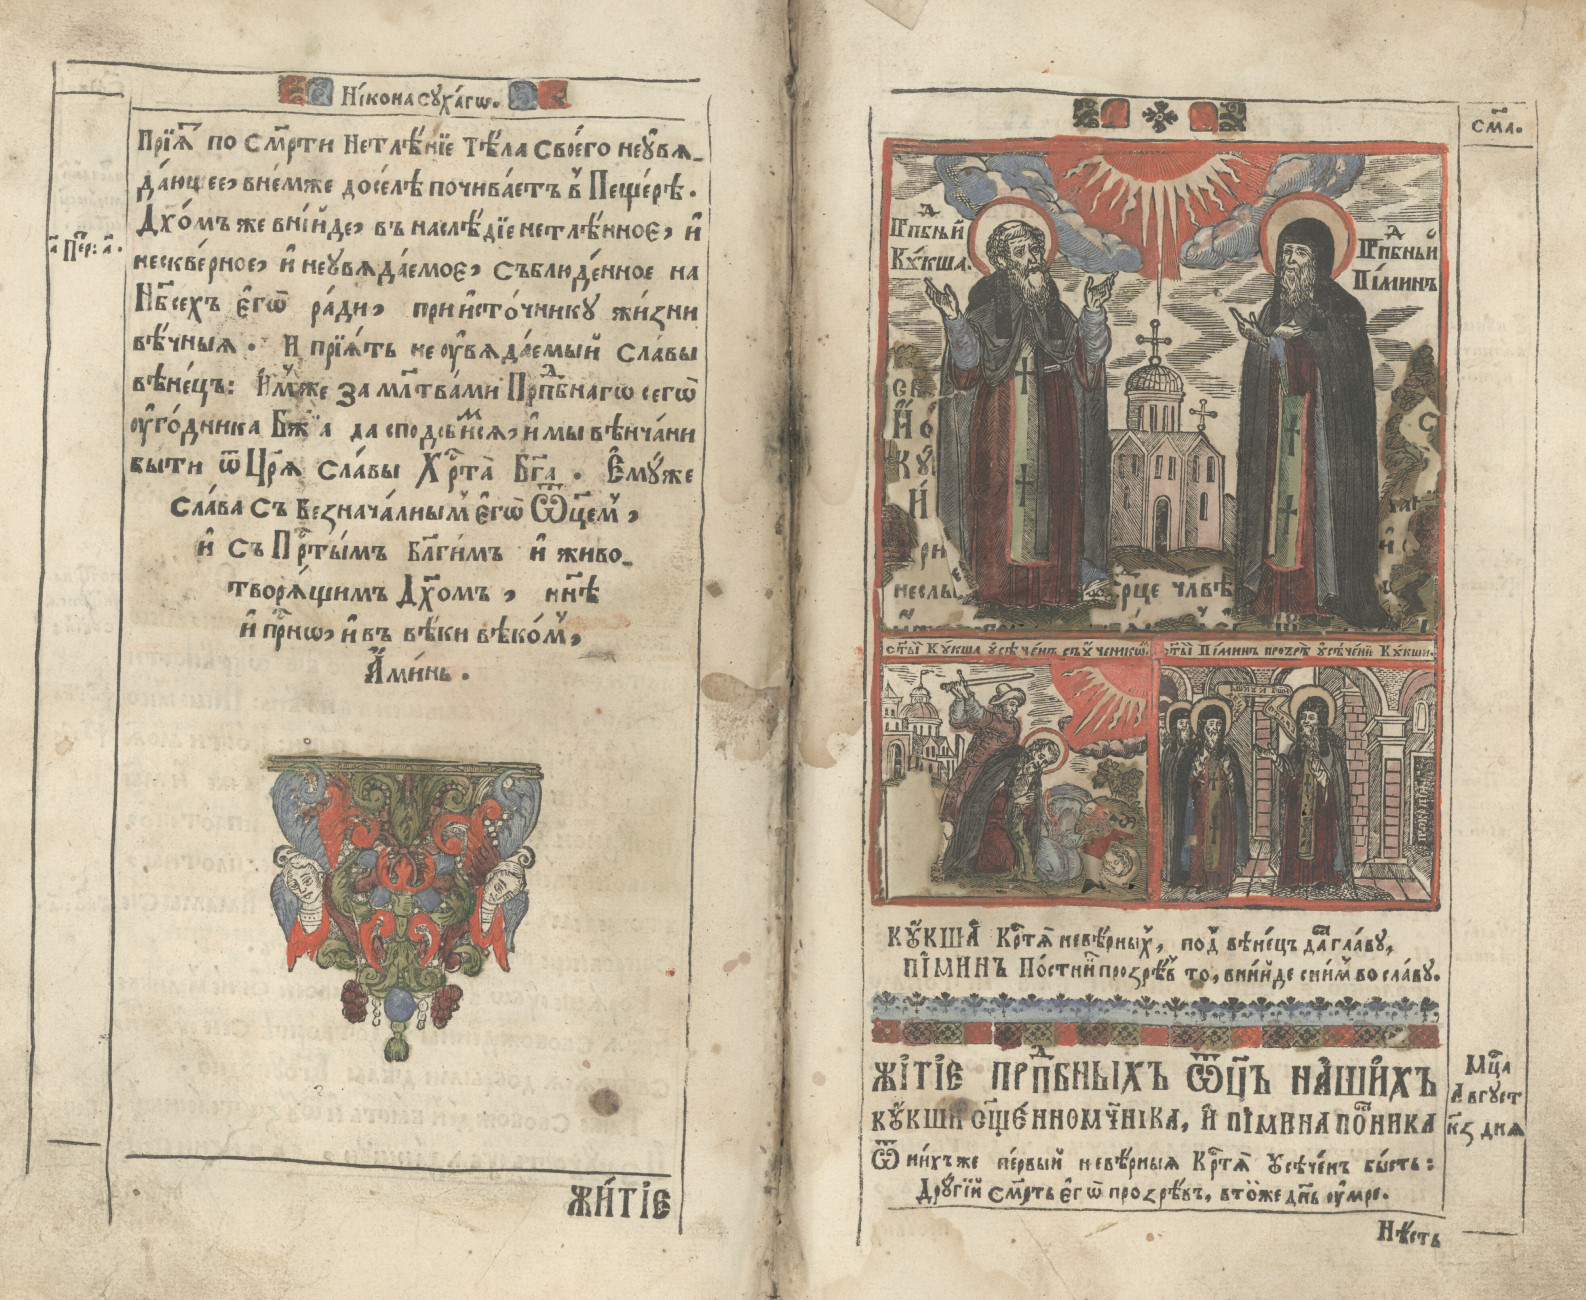 Нїкона сухагѡ.
Прїѧ҃т по См҃рти Нетлѣ́нїе тѣ́ла своегѡ̀ неувѧ-
да́ющее, в не́мже досе́лѣ почива́етъ в̾ Пеще́рѣ.
Дх҃омъ же вні́йде, въ наслѣ́дїе нетлѣ́нное, и҆
нескве́рное, и҆ неувѧда́емоє, съблюде́нное на
Нб҃сехъ є҆гѡ̀ ра́ди, при и҆сто́чнику жи́зни
вѣ́чныѧ. И҆ прїѧ́тъ не оувѧда́емый сла́вы
вѣне́цъ: И҆́мже за мл҃твами Прпⷣбнагѡ сегѡ̀
оуго́дника Бж҃їѧ да сподо́бимсѧ, и҆ мы̀ вѣнча́ни
бы́ти ѿ Цр҃ѧ сла́вы Хрⷭта̀ Бг҃а. Є҆му́же
сла́ва съ Безнача́лнымъ є҆гѡ̀ Ѻ҆ц҃емъ,
и҆ съ Прⷭты́мъ Бл҃ги́мъ и҆ живо-
творѧ́щимъ Дх҃омъ, нн҃ѣ
и҆ прⷭнѡ, и҆ въ вѣ́ки вѣко́мъ,
А҆ми́нь.
а҃ Пет: а҃.
ЖИТІЕ
см҃а.
Прпⷣбный
Ку́кша.
Прпⷣбный
Пі́минъ
ст҃ы́й Ку́кша усѣче́нъ съ ученикѡ́м
ст҃ы́й Пі́минъ прозрѣ̀ усѣче́нїе Ку́кши.
КУ́КША Крⷭтѧ̀ невѣ́рныхъ, под̾ вѣне́цъ да̀ главу̀,
ПІ́МИНЪ По́стникъ прозрѣ́въ то̀, вни́йде с ни́мъ во сла́ву.
ЖИТІЕ ПРПⷣБНЫХЪ Ѻ҆Ц҃Ъ НАШИХЪ
КУ́КШИ СЩ҃Е́ННОМЧ҃НИКА, И҆ ПІ́МИНА ПОⷭНИКА
Ѿ ни́хъже пе́рвый невѣ́рныѧ Крⷭтѧ̀ усѣче́нъ бы́сть:
Други́й см҃рть є҆гѡ̀ прозрѣ́въ, в то́йже дн҃ь оу́мре.
Мцⷭа
А́вгуст
к҃з днѧ
Нѣ́сть